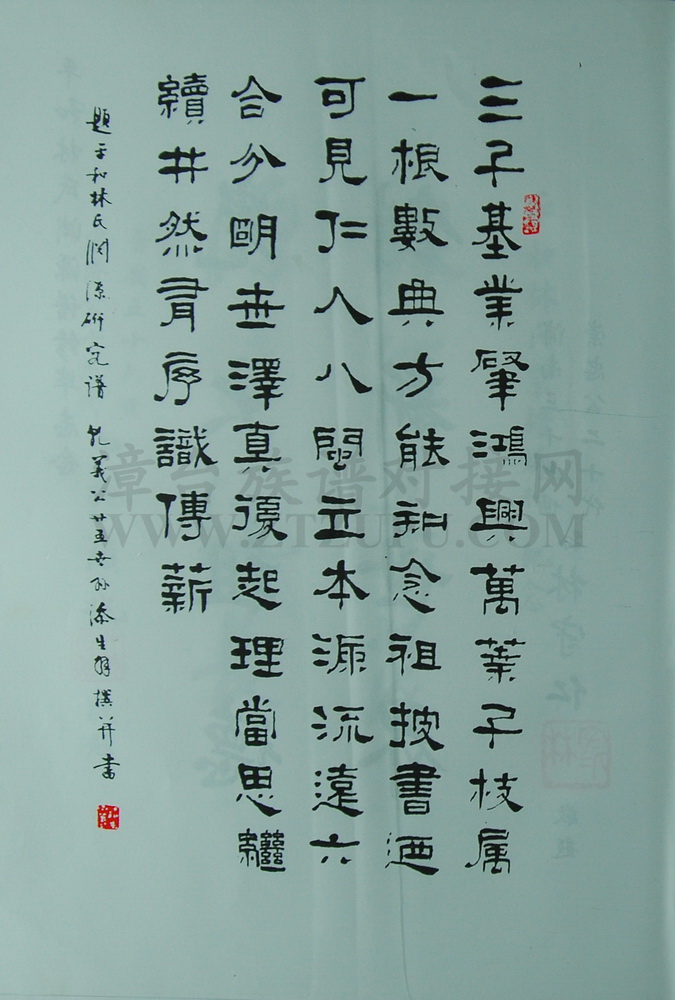 三千基業肇鴻興萬葉千枝属
一根數典方能知念祖披書迺
可見仁人八閩立本源流遠六
合分明世澤真後起理當思繼
續井然有序識傳薪
題平和林氏淵源研究譜 乾義公廿五世孫添生拜撰并書
章台族谱对接网
WWW.ZTZUPU.COM